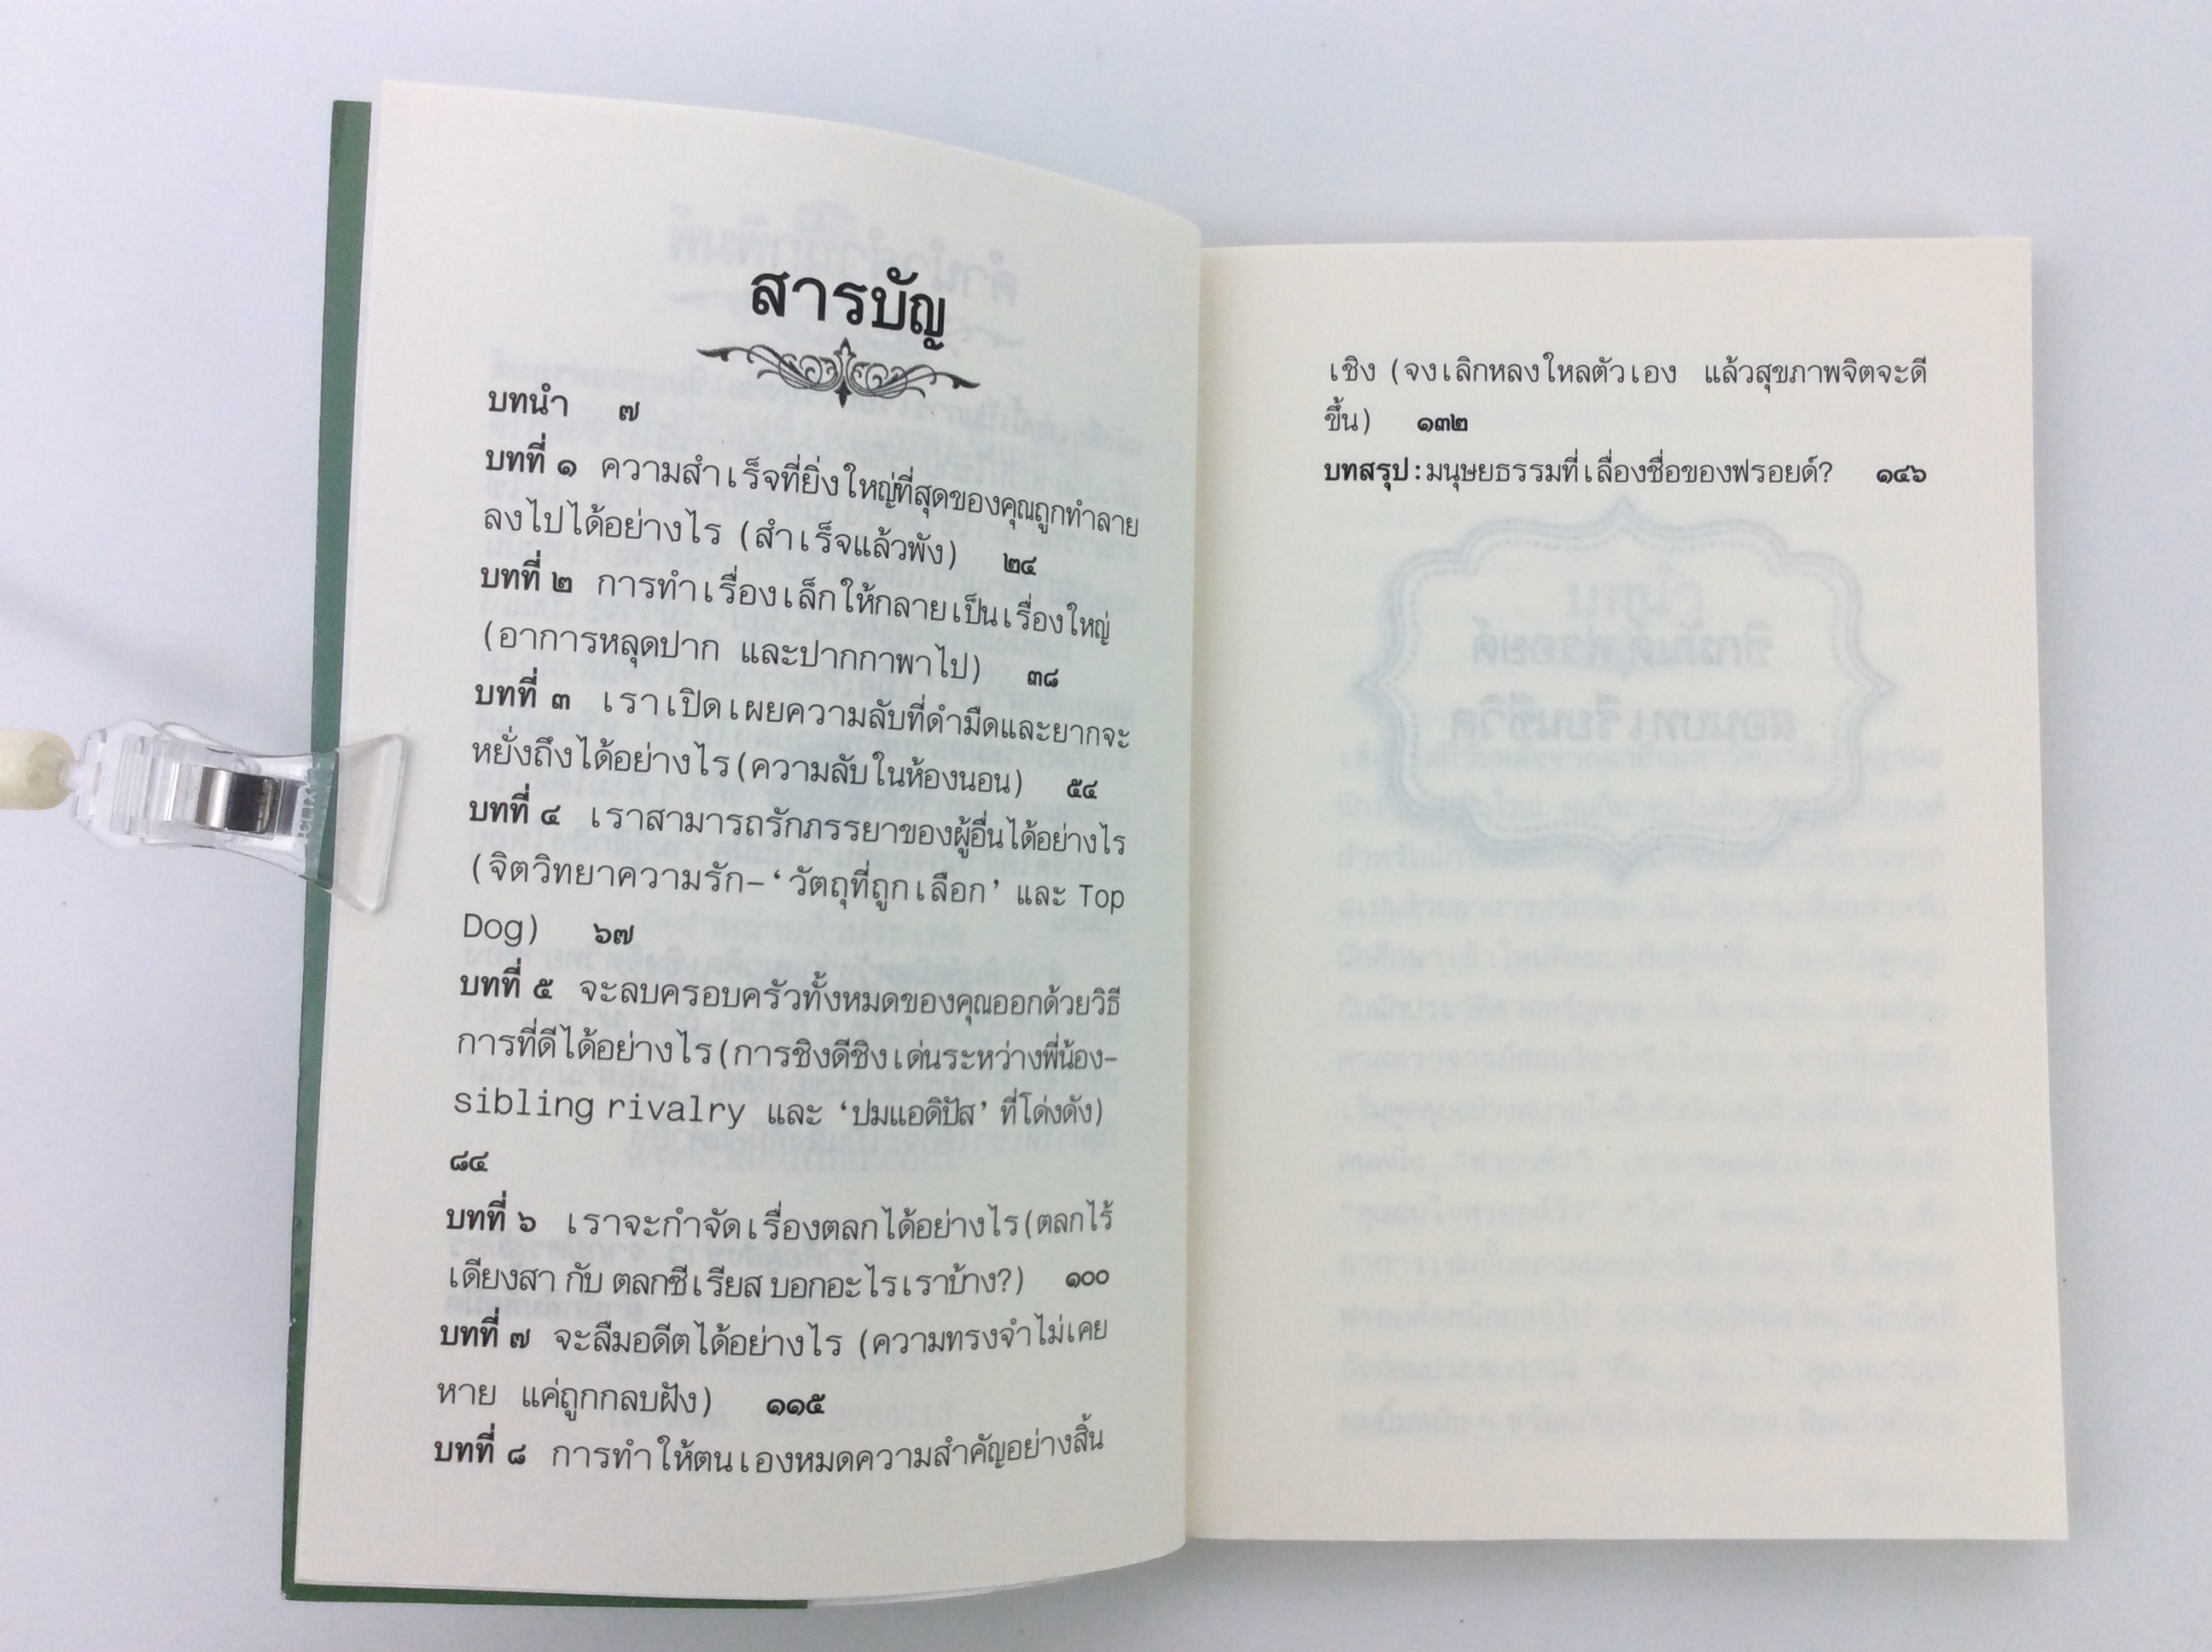 สารบัญ
บทนำ ๗
บทที่ ๑ ความสำเร็จที่ยิ่งใหญ่ที่สุดของคุณถูกทำลาย
ลงไปได้อย่างไร (สำเร็จแล้วพัง) ๒๔
บทที่ ๒ การทำเรื่องเล็กให้กลายเป็นเรื่องใหญ่
(อาการหลุดปาก และปากกาพาไป) ๓๘
บทที่ ๓ เราเปิดเผยความลับที่ดำมืดและยากจะ
หยั่งถึงได้อย่างไร (ความลับในห้องนอน) ๕๔
บทที่ ๔ เราสามารถรักภรรยาของผู้อื่นได้อย่างไร
(จิตวิทยาความรัก–‘วัตถุที่ถูกเลือก’ และ Top
Dog) ๖๗
บทที่ ๕ จะลบครอบครัวทั้งหมดของคุณออกด้วยวิธี
การที่ดีได้อย่างไร (การชิงดีชิงเด่นระหว่างพี่น้อง–
sibling rivalry และ ‘ปมแอดิปัส’ ที่โด่งดัง)
๘๔
บทที่ ๖ เราจะกำจัดเรื่องตลกได้อย่างไร (ตลกไร้
เดียงสา กับ ตลกซีเรียส บอกอะไรเราบ้าง?) ๑๐๐
บทที่ ๗ จะลืมอดีตได้อย่างไร (ความทรงจำไม่เคย
หาย แค่ถูกกลบฝัง) ๑๑๕
บทที่ ๘ การทำให้ตนเองหมดความสำคัญอย่างสิ้น
เชิง (จงเลิกหลงใหลตัวเอง แล้วสุขภาพจิตจะดี
ขึ้น) ๑๓๒
บทสรุป : มนุษยธรรมที่เลื่องชื่อของฟรอยด์? ๑๔๖